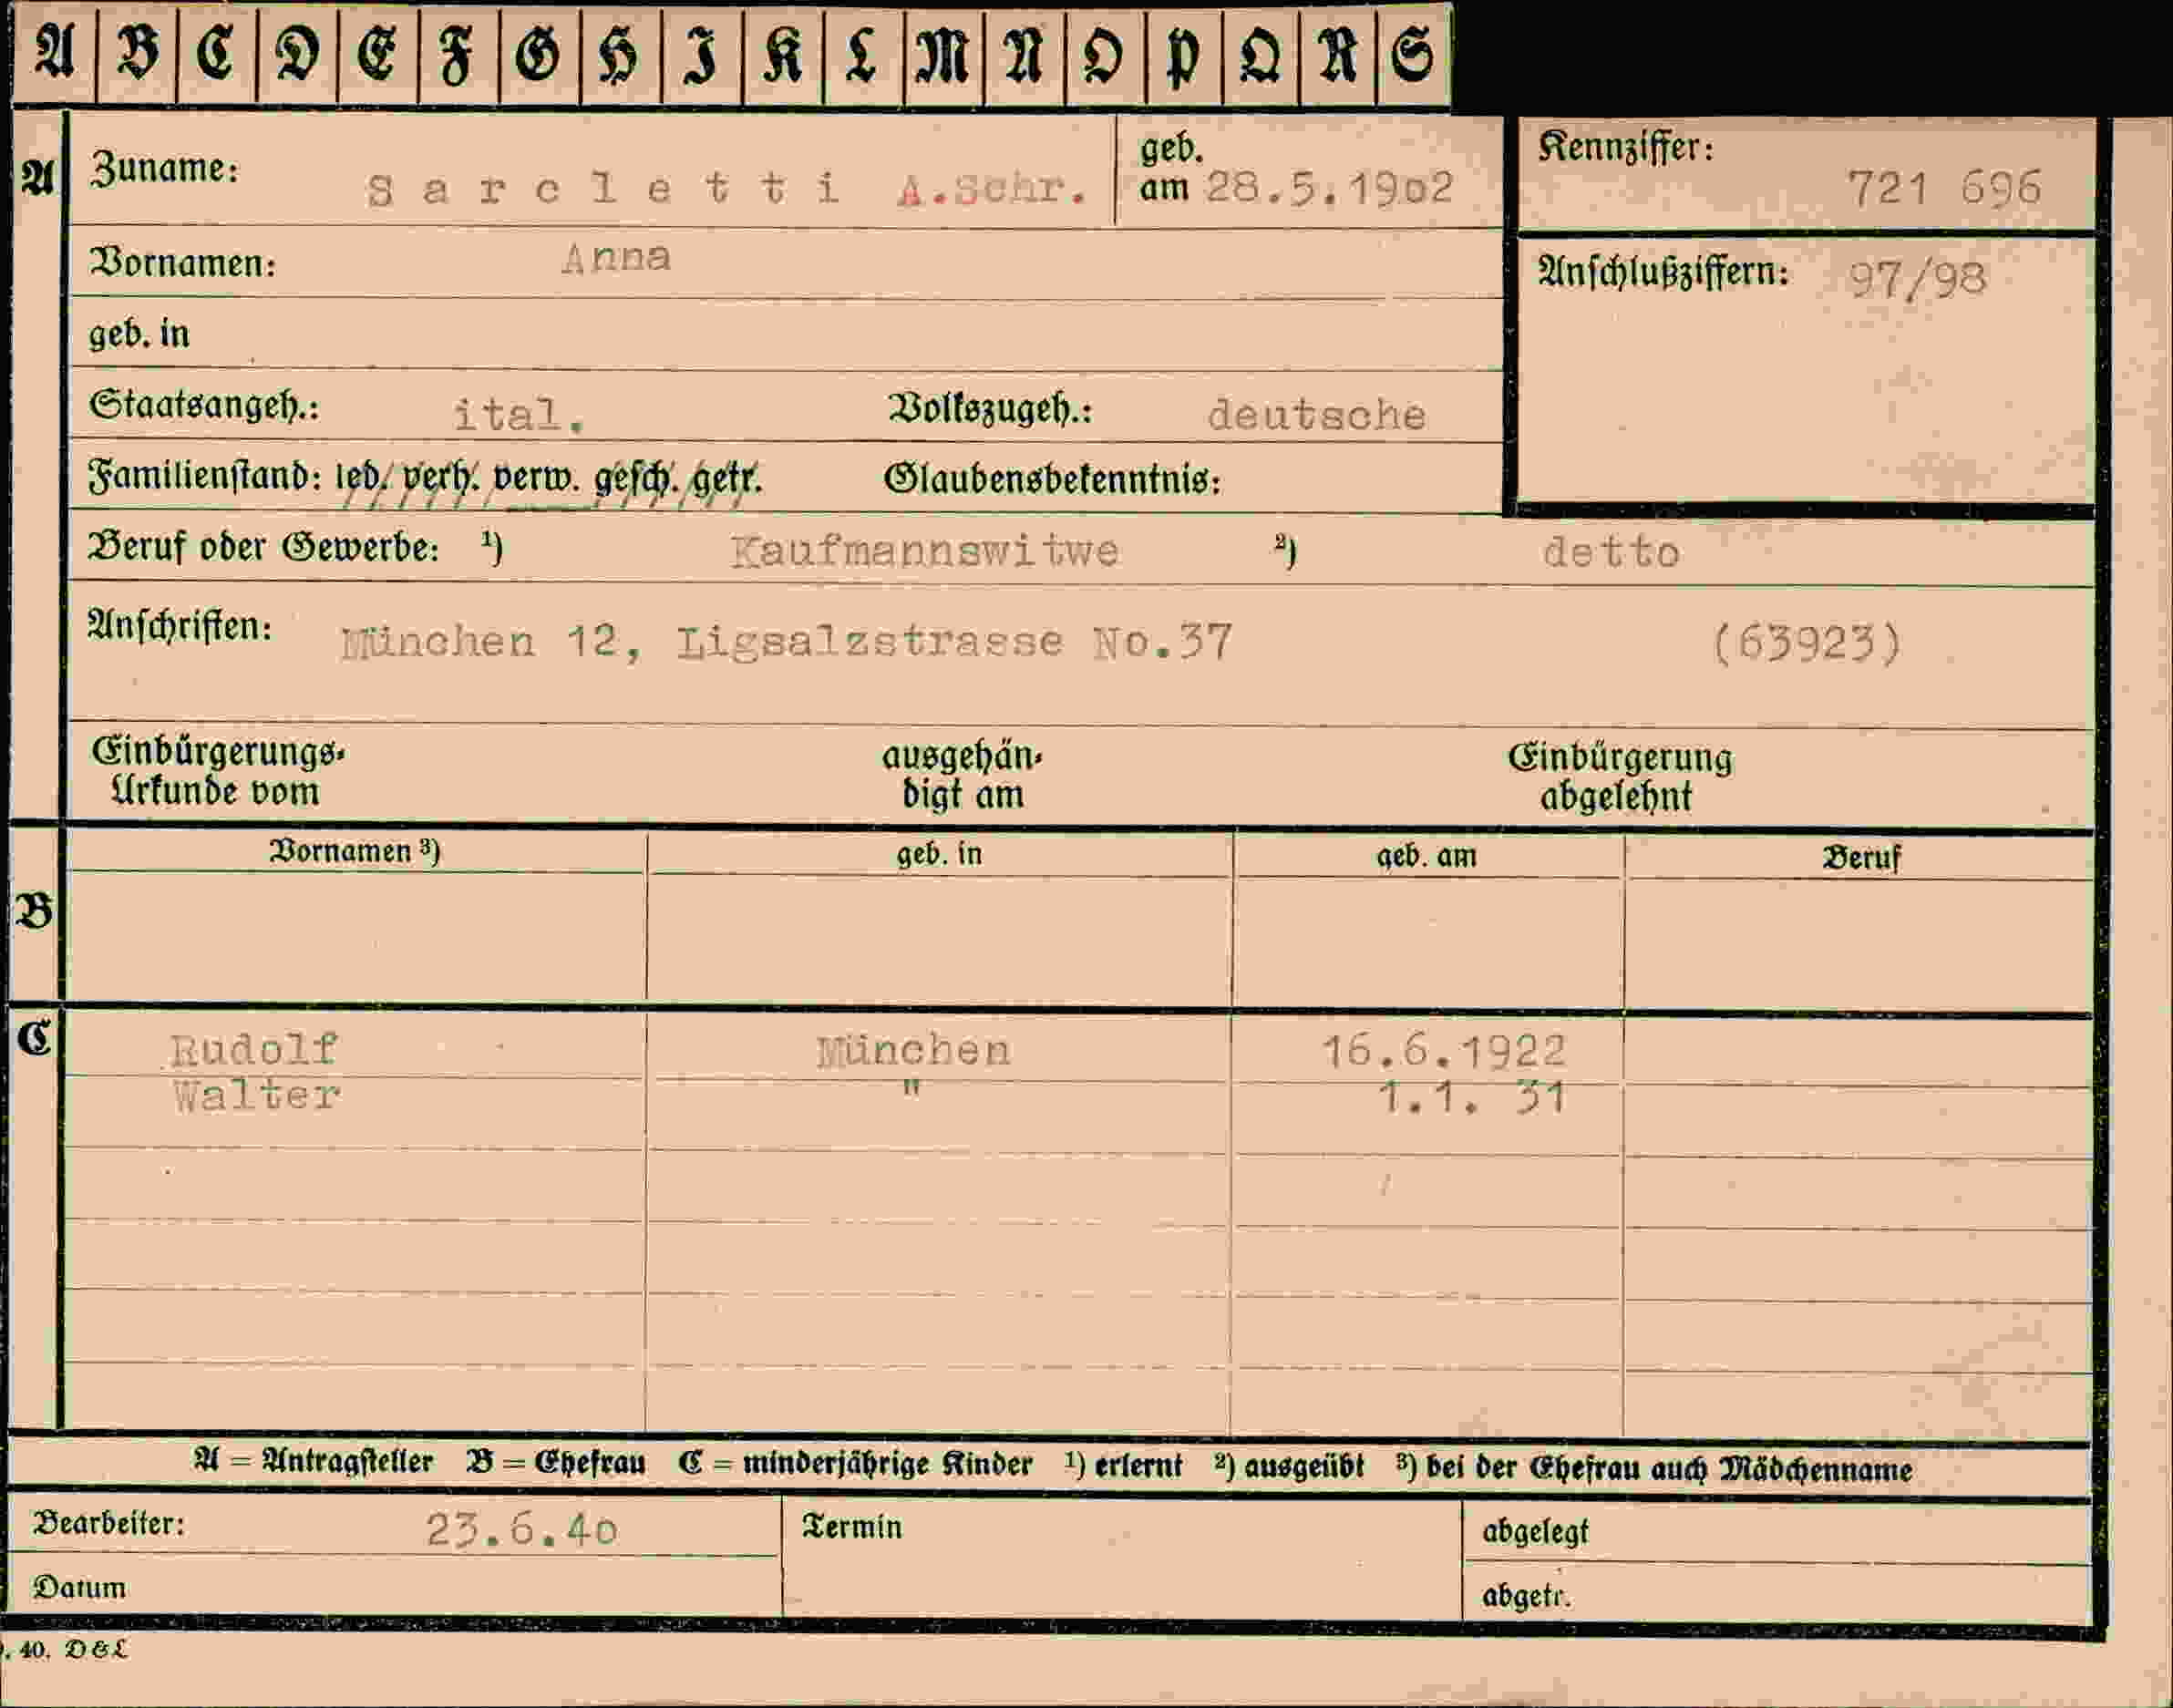 A B C D E F G H I K L M N O P Q R S
A Zuname: Sarcletti A.Schr. geb. am 28.5.1902 Kennziffer: 721 696
Vornamen: Anna Anschlußziffern: 97/98
geb. in
Staatsangeh.: ital. Volkszugeh.: deutsche
Familienstand: led. verh. verw. gesch. getr. Glaubensbekenntnis:
Beruf oder Gewerbe: ¹) Kaufmannswitwe ²) detto
Anschriften: München 12, Ligsalzstrasse No.37 (63923)
Einbürgerungs- ausgehän- Einbürgerung
Urkunde vom digt am abgelehnt
Vornamen ³) geb. in geb. am Beruf
B
C Rudolf München 16.6.1922
Walter " 1.1. 31
A = Antragsteller B = Ehefrau C = minderjährige Kinder ¹) erlernt ²) ausgeübt ³) bei der Ehefrau auch Mädchenname
Bearbeiter: 23.6.40 Termin abgelegt
Datum abgetr.
. 40. D & L